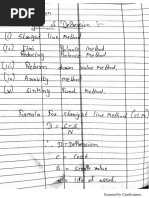 of Depression :-
(i) Straight line method
(ii)
Reducing Balance method.
(iii) down value method.
(iv) Annuity method
(v) Sinking Fund method.
Formula for straight line method (SLM)
D = C - S
N
D = Depression
C = Cost
value
life of asset.
Scanned by CamScanner